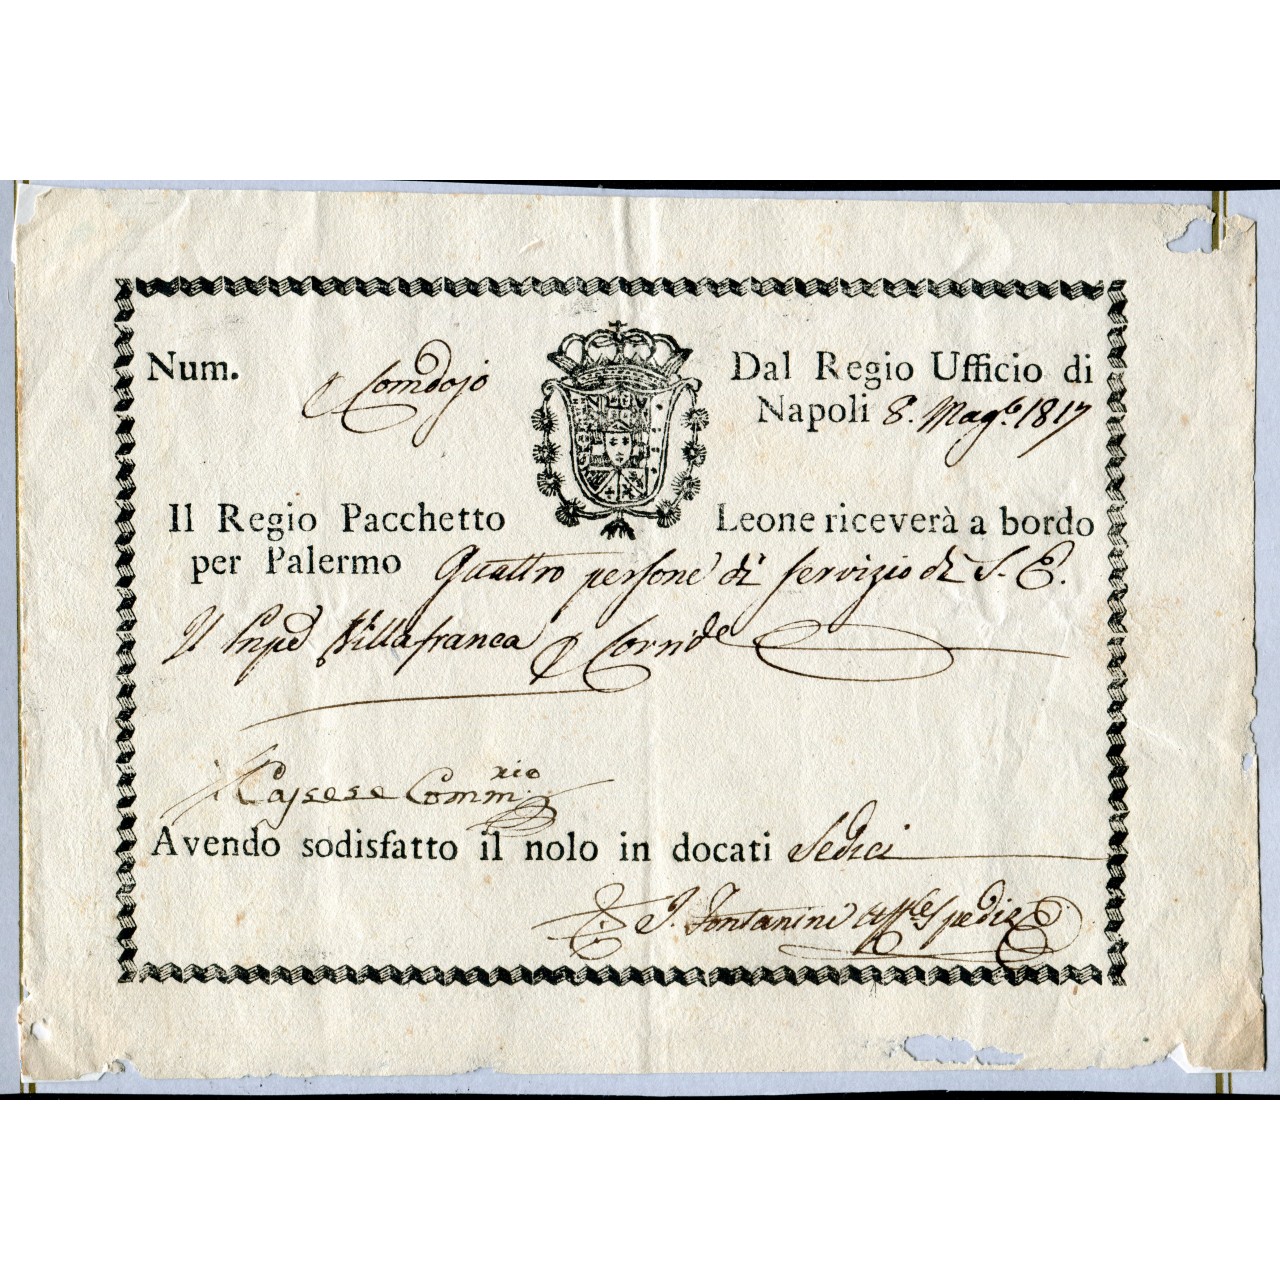 Num.
Dal Regio Ufficio di
Napoli 8. Magº. 1817
Il Regio Pacchetto Leone riceverà a bordo
per Palermo Quattro persone di servizio di S. E.
Il Villafranca
Cassese Comm.rio
Avendo sodisfatto il nolo in docati Sedici
Fontanini